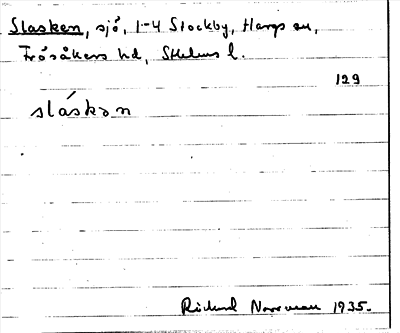 Slasken, sjö, 1-4 Stockby, Hargs sn,
Frösåkers hd, Sthlms l.
129
sláskən
Rickard Norrman 1935.